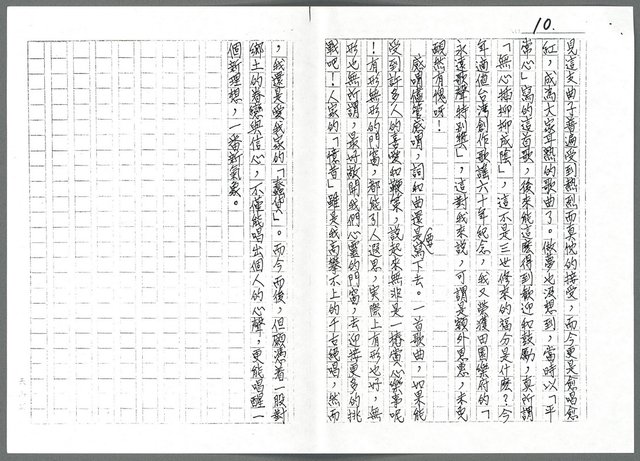 10.
見這支曲子普遍受到熱烈而真忱的接受，而今更是愈唱愈
紅，成為大家耳熟的歌曲了。做夢也沒想到，當時以「平
常心」寫的這首歌，後來能這麼得到歡迎和鼓勵，真所謂
「無心插柳柳成陰」，這不是三世修來的福分是什麼？今
年適值台灣創作歌謠六十年紀念，我又榮獲田園樂府的「
永遠歌聲特別獎」，這對我來說，可謂是額外恩惠，未免
靦然有愧呀！
感喟儘管感喟，詞和曲還是會寫下去。一首歌曲，如果能
受到許多人的喜愛和鞭策，說起來無非是一樁賞心樂事呢
！有形無形的門窗，都能引人遐思，實際上有形也好，無
形也無所謂，最好敞開我們心靈的門窗，去迎接更多的挑
戰吧！人家的「憶昔」雖是我高攀不上的千古絕唱，然而
，我還是愛我家的「蠢貨」。而今而後，但願憑着一股對
鄉土的眷戀與信心，不僅能唱出個人的心聲，更能唱醒一
個新理想，一番新氣象。